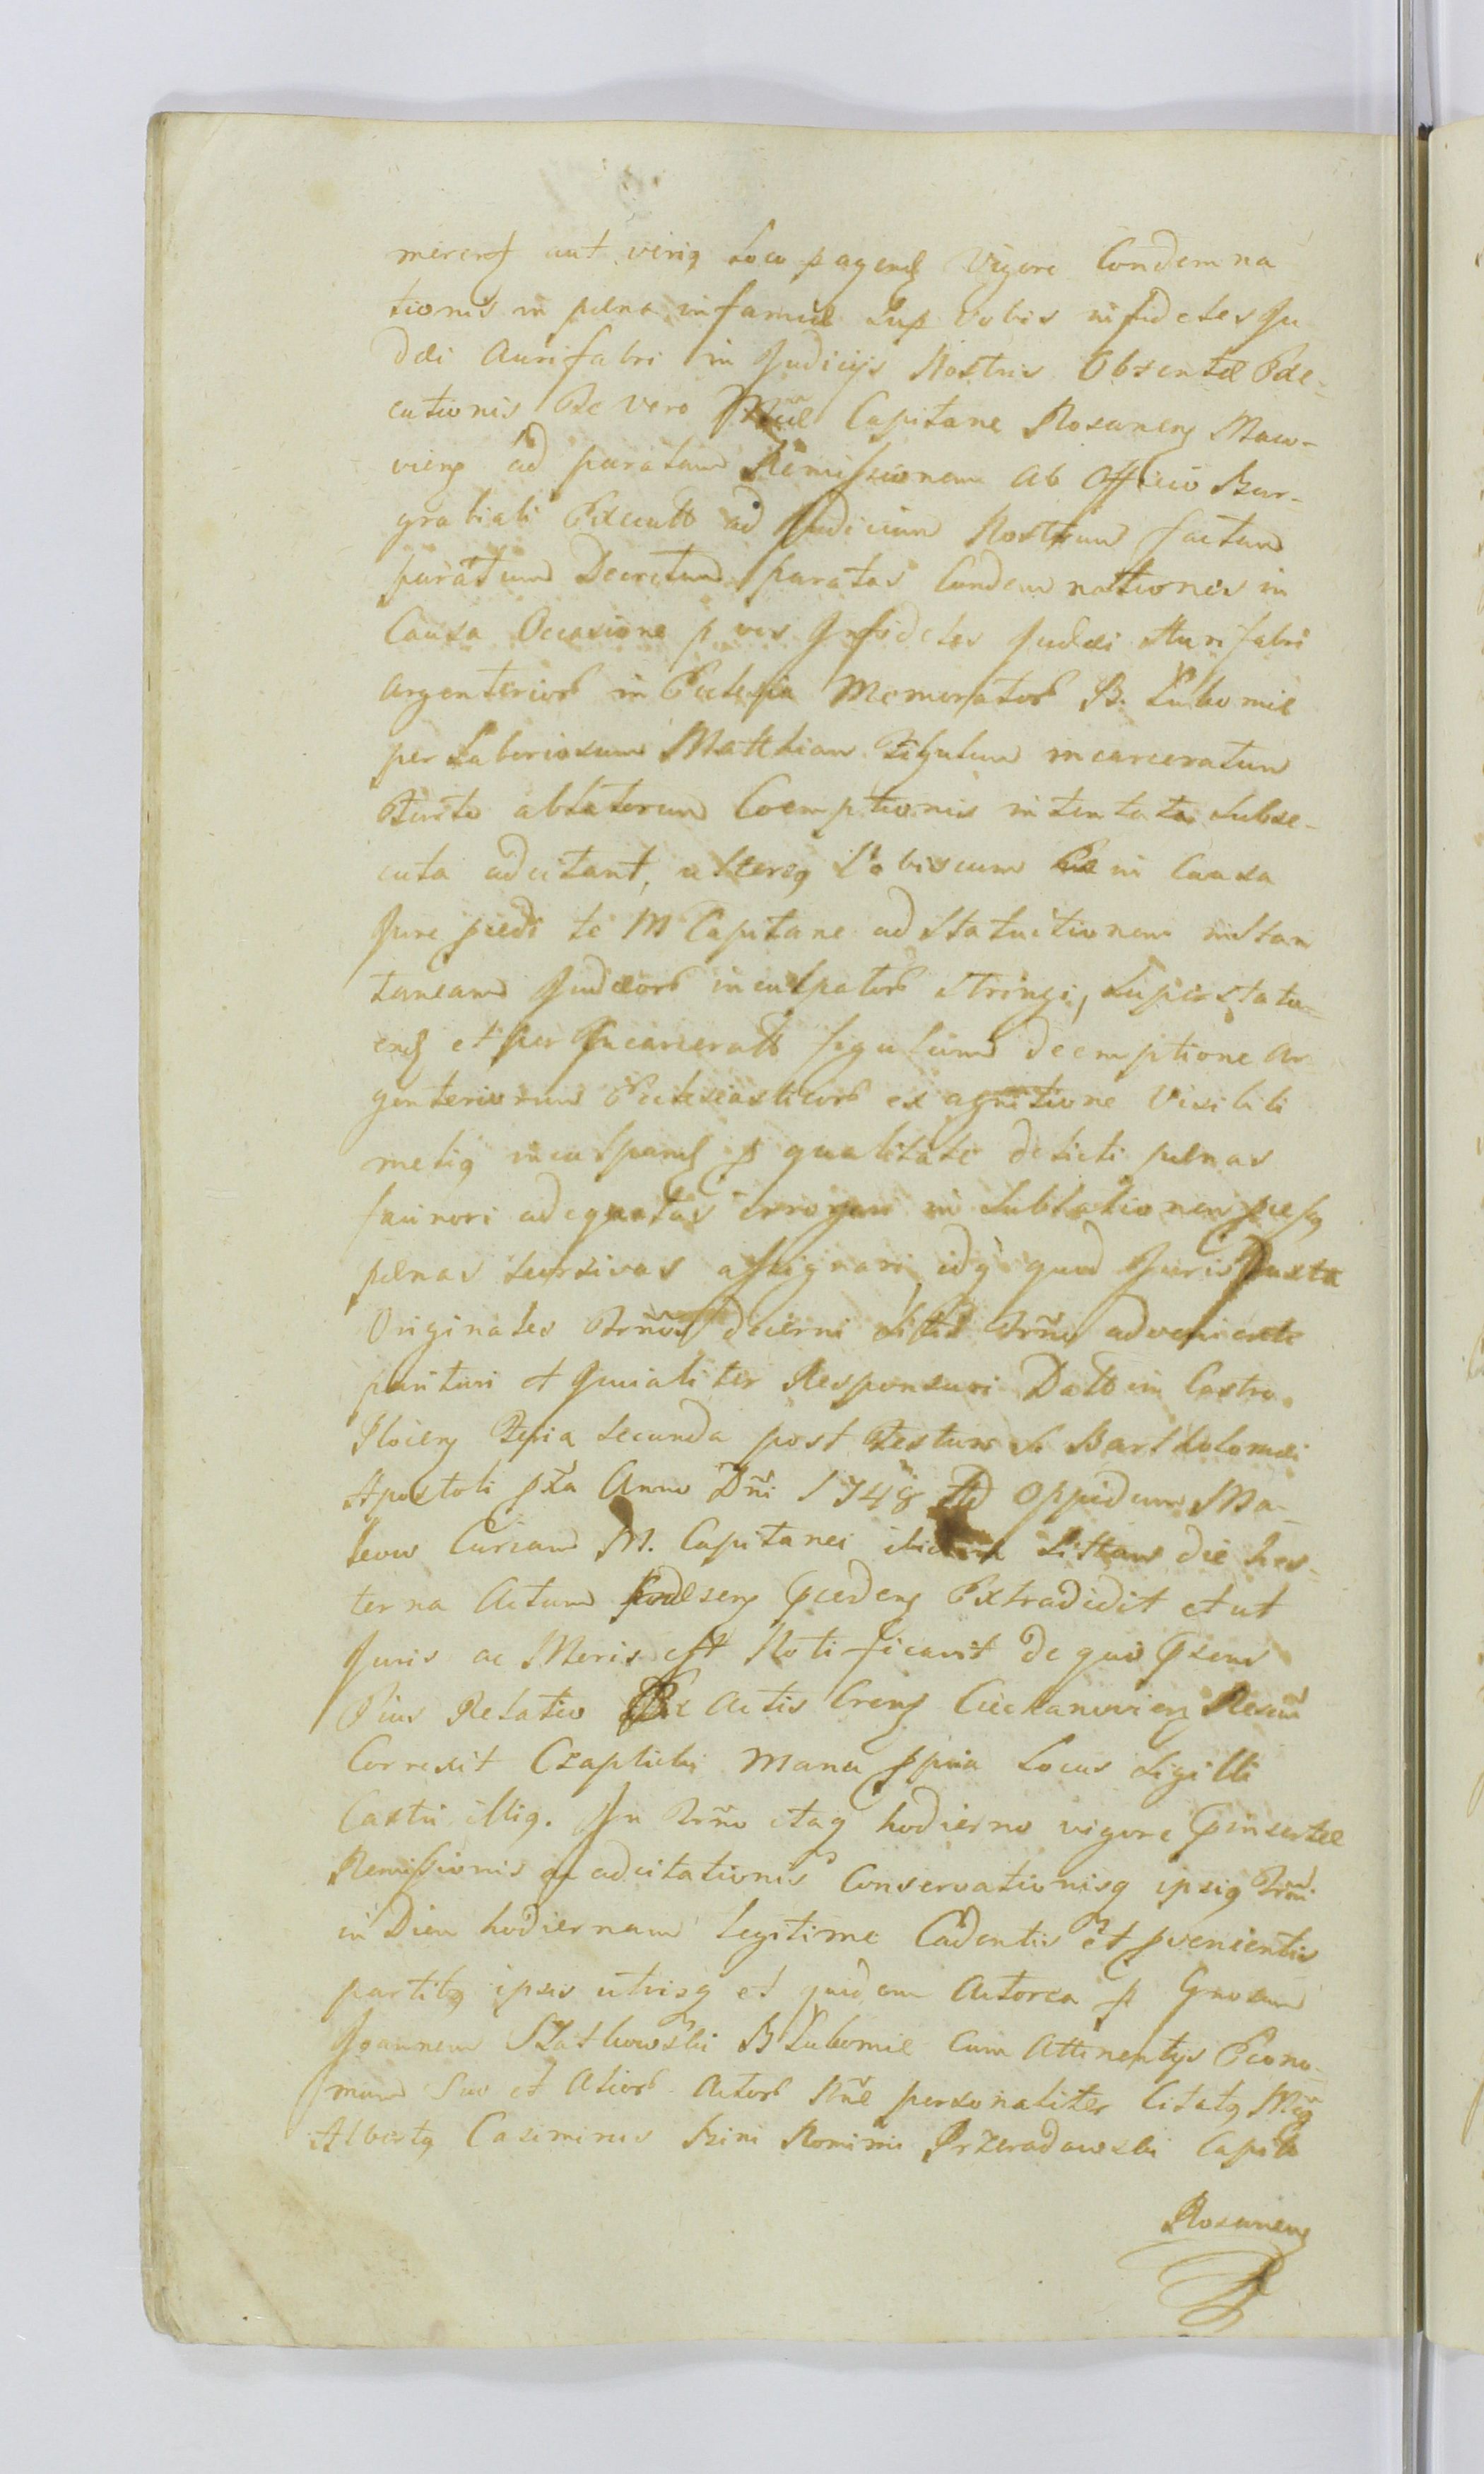 aut veriq Loco pagend Vigore Condemna
tionis in pœna infamiæ Sup Vobis infideles Ju
dæi Aurifabri in Judicijs Nostris Obtentæ Exe-
cutionis Te vero Capitane Rosanens Mako-
viens ad paratam Remissionem ab Officio Bur-
grabiali Execútt ad Judicium Nostrum factam
paratum Decretum paratas Condemnationes in
Causa Occasione p vos Infideles Judæi Aurifabri
Argenteriorƀ in Ecclesia Memoratorƀ B. Lubomie
per Laboriosum Matthiam Figulum incarceratum
Furto ablatorum Coemptionis intentata Subse-
cuta adcitant, alterq Vobiscum in Causa
Jure te M Capitane ad Statuitionem instan
taneam Judæorƀ inculpatorƀ Stringi, Super Statu-
end et per Incarceratt figulum de emptione Ar
genteriorum Ecclesiasticorƀ ex agnitione Visibili
meliq inculpand p qualitate delicti pœnas
fainori adequatas irrogari in Sublationem
pœnas assignari idq quod Juris Juxta
Originales decerni Trno adveniente
parituri et Jurialiter Responsuri Datt in Castro
Plocens Feria Secunda post Festum S. Bartholomæi
Apostoli pxa Anno Dni 1748 Ad Oppidum Ma-
kow Curiam M. Capitanei ibidem Littam die hes-
terna Actum Extradidit et ut
Juris ac Moris est Notificavit de quo psens
Eius Relatio Ex Actis Crens Ciechanoviens
Correxit Czaplicki Manu ppria Locus Sigilli
Castri illiq. In Trno itaq hodierno vigore pinsertæ
Remissionis ac adcitationis Conservationisq ipsiq
in Diem hodiernam legitime Cadentis et pvenientis
partibq ipsis utrisq et quidem Actorea p Gnosum
Joannem B Lubomie Cum Attinentijs Econo-
mum Suo et Aliorƀ Actorƀ personaliter Citatq
Albertq Casimirus Przeradowski Capitt
Rosanens